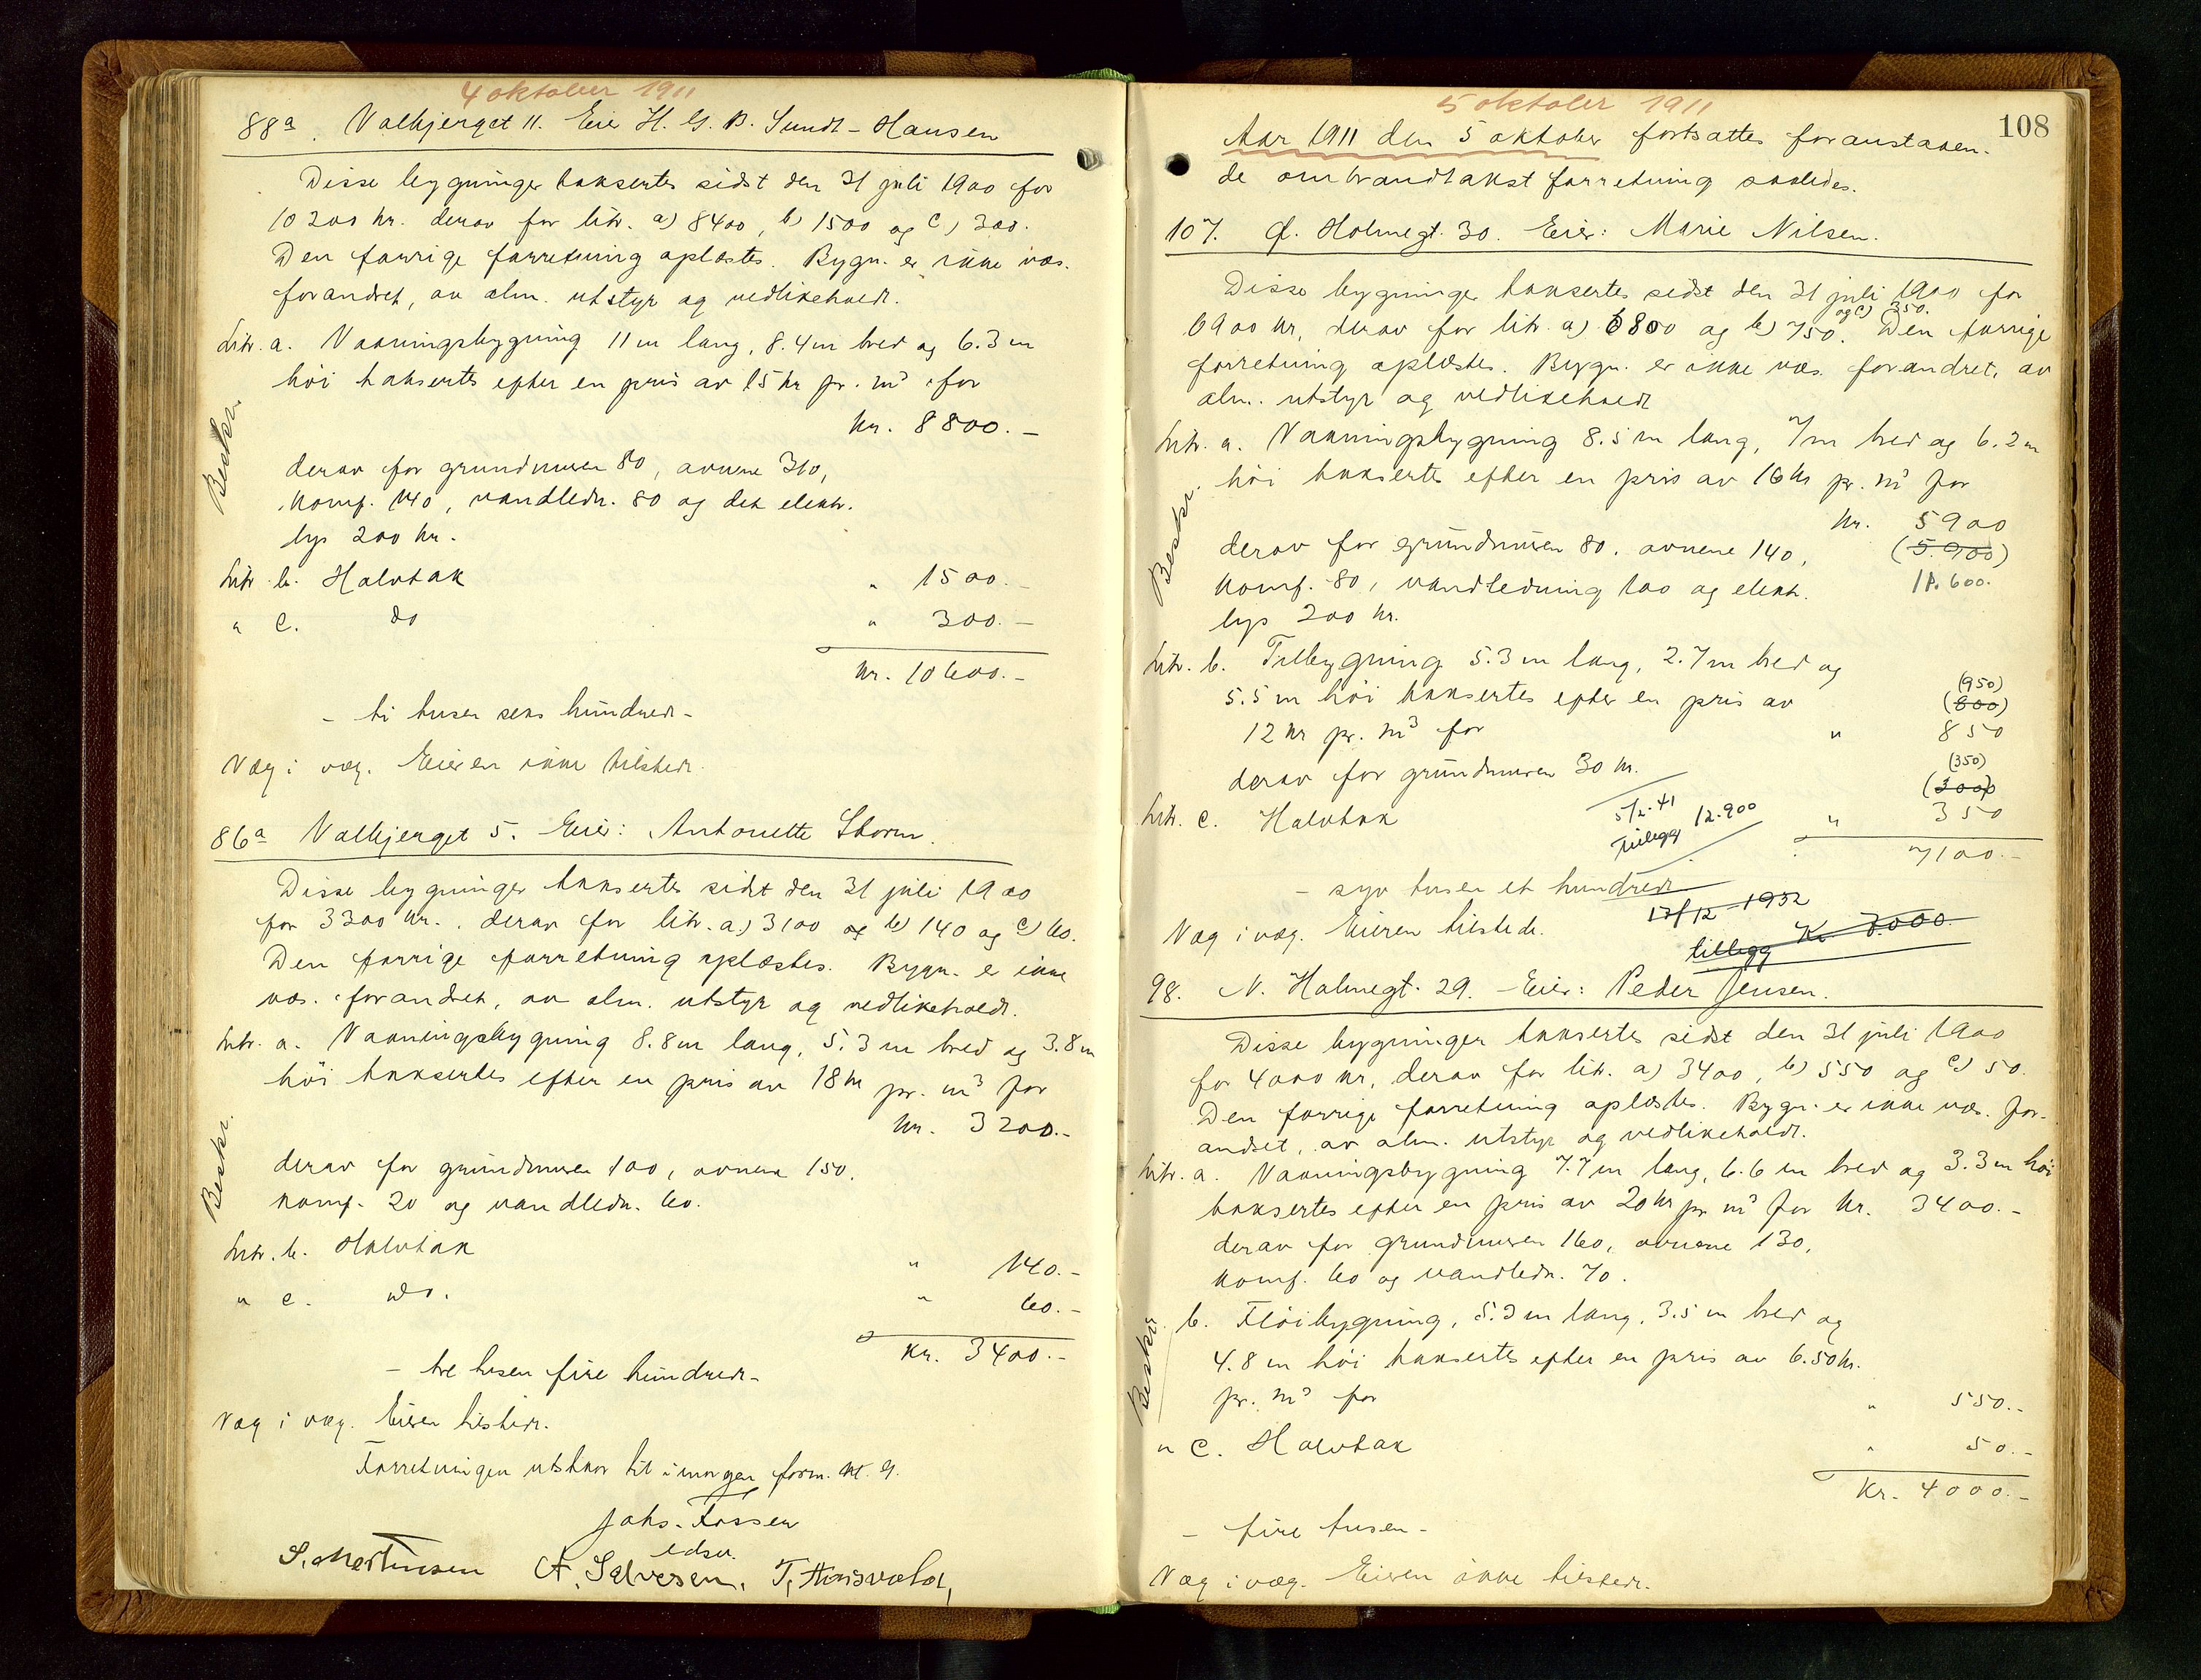 4 oktober 1911
88a. Valbjerget 11. Eier H. G. B. Sundt-Hansen
Disse bygninger taksertes sidst den 31 juli 1900 for
10200 kr. derav for litr. a) 8400, b) 1500 og c) 300.
Den forrige forretning oplæstes. Bygn. er ikke væs.
forandret, av alm. utstyr og vedlikeholdt.
Litr. a. Vaaningsbygning 11 m lang, 8.4 m bred og 6.3 m
høi taksertes efter en pris av 15 kr pr. m³ for
kr. 8800.-
Beskr.
derav for grundmuren 80, ovnene 310,
komf. 140, vandledn. 80 og det elektr.
lys 200 kr.
Litr. b. Halvtak " 1500.-
" c. do " 300.-
kr. 10600.-
- ti tusen seks hundredr-
Væg i væg. Eieren ikke tilstede.
86a Valbjerget 5. Eier: Antonette Storm.
Disse bygninger taksertes sidst den 31 juli 1900
for 3300 kr., derav for litr. a.) 3100 og b) 140 og c) 60.
Den forrige forretning oplæstes. Bygn. er ikke
væs. forandret, av alm. utstyr og vedlikeholdt.
Litr. a. Vaaningsbygning 8.8 m lang, 5.3 m bred og 3.8 m
høi taksertes efter en pris av 18 kr pr. m³ for
kr. 3200.-
Beskr.
derav for grundmuren 100, ovnene 150,
komf. 20 og vandledn. 60.
Litr. b. Halvtak " 140.-
" c. do. " 60.-
Kr. 3400.-
- tre tusen fire hundredr-
Væg i væg. Eieren tilstede.
Forretningen utstaar til imorgen form. kl. 9.
Johs. Fossen
edsv.
S. Martinsen A. Salvesen, T.
5 oktober 1911
108
Aar 1911 den 5 oktober fortsattes foranstaaen-
de ombrandtakst forretning saaledes.
107. Ø. Holmegt. 30. Eier: Marie Nilsen.
Disse bygninger taksertes sidst den 31 juli 1900 for
6900 kr, derav for litr. a) 5800 og b) 750 og c) 350. Den forrige
forretning oplæstes. Bygn. er ikke væs. forandret, av
alm. utstyr og vedlikeholdt
Litr. a. Vaaningsbygning 8.5 m lang, 7 m bred og 6.2 m
høi taksertes efter en pris av 16 kr pr. m³ for
kr. 5900
Beskr.
derav for grundmuren 80, ovnene 140, (5.900)
komf. 80, vandledning 100 og elektr. 11.600.
lys 200 kr.
Litr. b. Tilbygning 5.3 m lang, 2.7 m bred og
5.5 m høi taksertes efter en pris av (950) (800)
12 kr pr. m³ for " 850
derav for grundmuren 30 kr. (350) (300)
Litr. c. Halvtak " 350
5/2-41
Tillegg 12.900
7100.-
- syv tusen et hundredr
17/12-1932
tillegg Kr. 7.000.
Væg i væg. Eieren tilstede.
98. N. Holmegt. 29. Eier: Peder Jensen.
Disse bygninger taksertes sidst den 31 juli 1900
for 4000 kr, derav for litr. a) 3400, b) 550 og c) 50.
Den forrige forretning oplæstes. Bygn. er ikke væs. for-
andret, av alm. utstyr og vedlikeholdt.
Litr. a. Vaaningsbygning 7.7 m lang, 6.6 m bred og 3.3 m høi
taksertes efter en pris av 20 kr pr m³ for kr. 3400.-
derav for grundmuren 160, ovnene 130,
komf. 60 og vandledn. 70.
Beskr.
b. Fløibygning, 5.3 m lang, 3.5 m bred og
4.8 m høi taksertes efter en pris av 6.50 kr.
pr. m³ for " 550.-
" c. Halvtak " 50.-
Kr. 4000.-
- fire tusen-
Væg i væg. Eieren ikke tilstede.